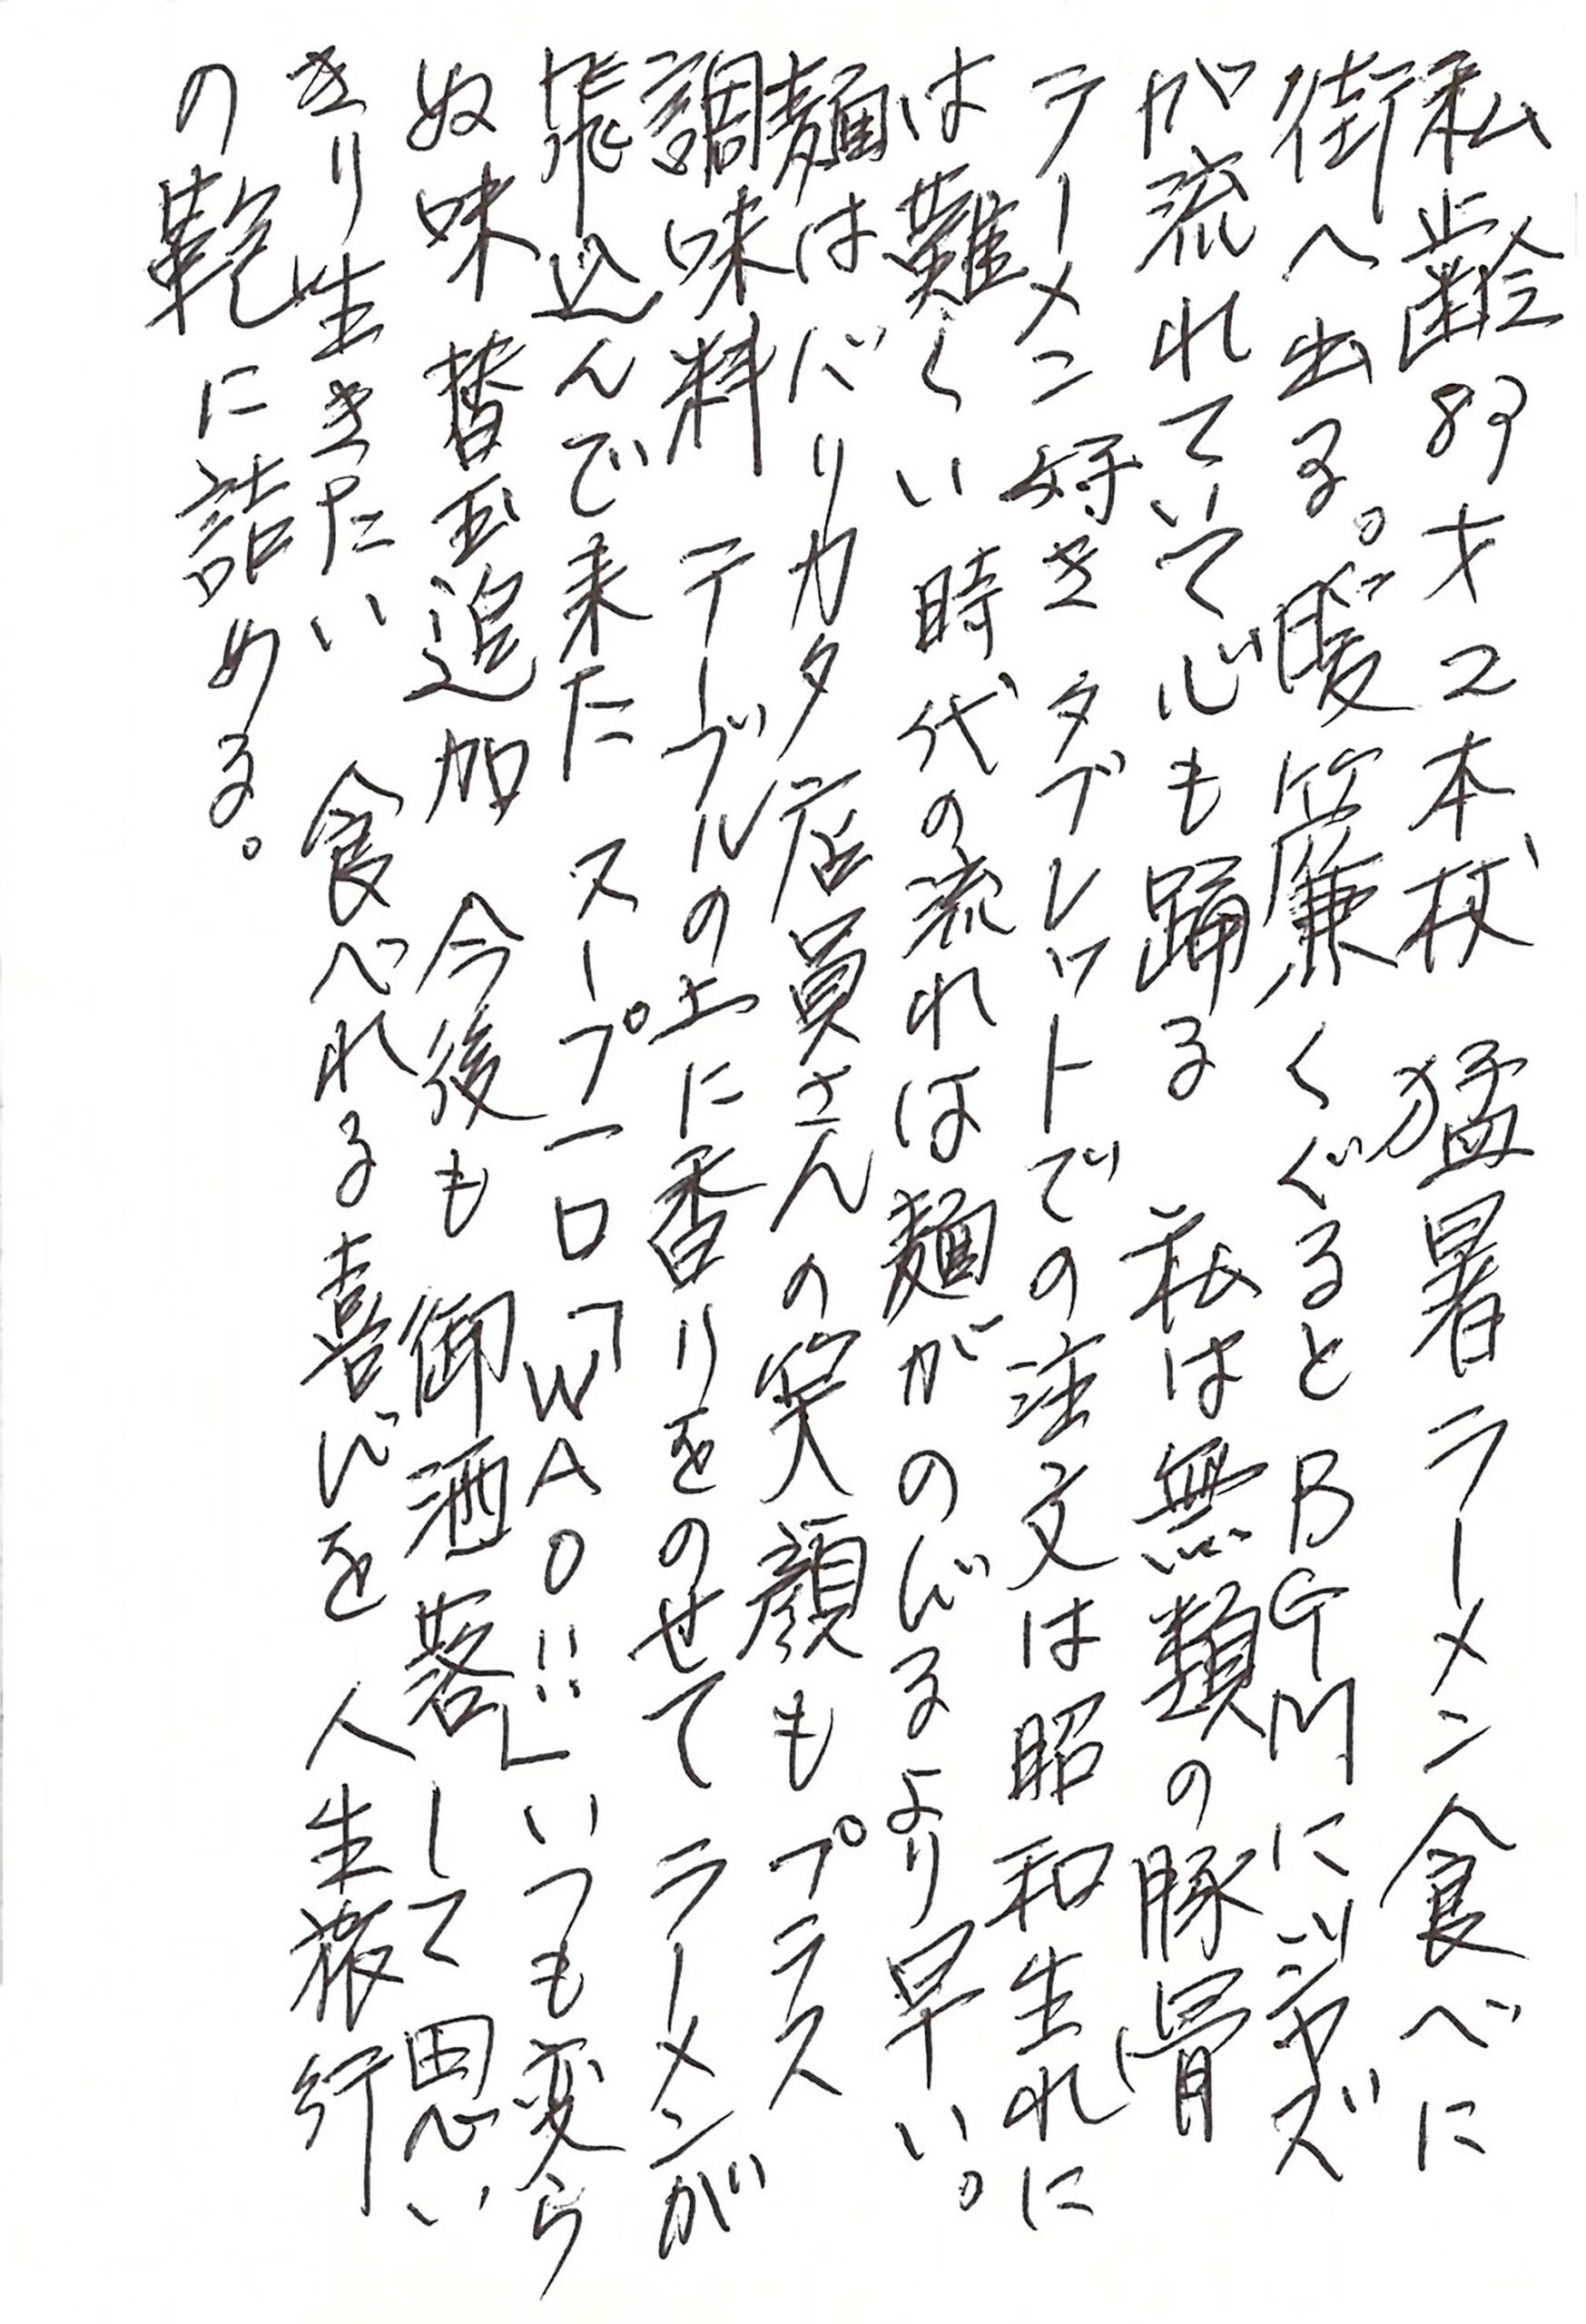 私齢89才2本杖 猛暑ラーメン食べに
街へ出る。暖簾くぐるとBGMにジャズ
が流れていて心も踊る 私は無類の豚骨
ラーメン好き タブレットでの注文は昭和生れに
は難しい時代の流れは麺がのびるより早い。
麺はバリカタ店員さんの笑顔も プラス
調味料 テーブルの上に香りをのせて ラーメンが
飛込んで来た スープ一口「WAO!!」いつも変ら
ぬ味 替玉追加 今後も 御洒落して 思い
きり生きたい 食べれる喜びを 人生旅行
の鞄に詰める。